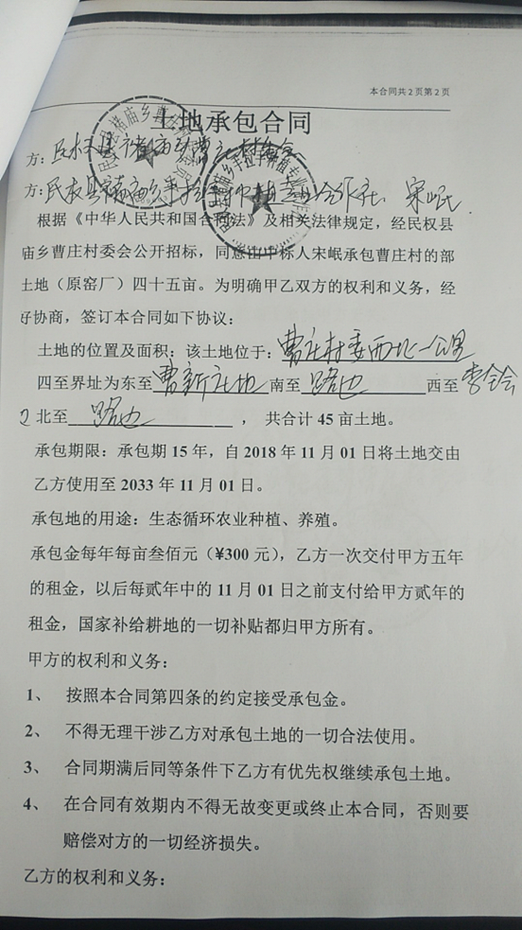 本合同共2页第2页
土地承包合同
方：民权县褚庙乡曹庄村委会
方：民权县褚庙乡手拉手种植专业合作社 宋岷
根据《中华人民共和国合同法》及相关法律规定，经民权县
庙乡曹庄村委会公开招标，同意由中标人宋岷承包曹庄村的部
土地（原窑厂）四十五亩。为明确甲乙双方的权利和义务，经
好协商，签订本合同如下协议：
土地的位置及面积：该土地位于：曹庄村委西北一公里
四至界址为东至曹新庄地南至路边西至李全会
北至路边，共合计45亩土地。
承包期限：承包期15年，自2018年11月01日将土地交由
乙方使用至2033年11月01日。
承包地的用途：生态循环农业种植、养殖。
承包金每年每亩叁佰元（¥300元），乙方一次交付甲方五年
的租金，以后每贰年中的11月01日之前支付给甲方贰年的
租金，国家补给耕地的一切补贴都归甲方所有。
甲方的权利和义务：
1、 按照本合同第四条的约定接受承包金。
2、 不得无理干涉乙方对承包土地的一切合法使用。
3、 合同期满后同等条件下乙方有优先权继续承包土地。
4、 在合同有效期内不得无故变更或终止本合同，否则要
赔偿对方的一切经济损失。
乙方的权利和义务：